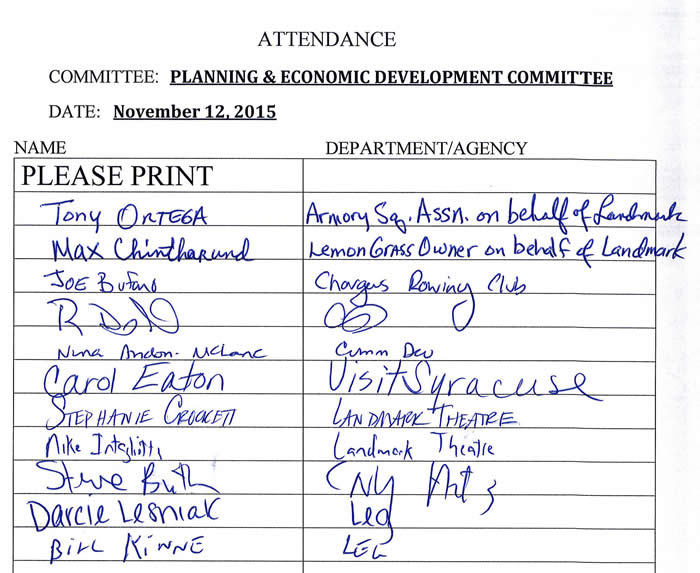 ATTENDANCE
COMMITTEE: PLANNING & ECONOMIC DEVELOPMENT COMMITTEE
DATE: November 12, 2015
NAME DEPARTMENT/AGENCY
PLEASE PRINT
Tony ORTEGA Armory Sq. Assn. on behalf of Landmark
Max Chintharund Lemon Grass Owner on behalf of Landmark
JOE Bufano Chargers Rowing Club
R
Nina Andon-McLane Comm Dev
Carol Eaton Visit Syracuse
STEPHANIE CROCKETT LANDMARK THEATRE
Mike Landmark Theatre
Steve CNY Arts
Darcie Lesniak Leg
BILL KINNE LEG